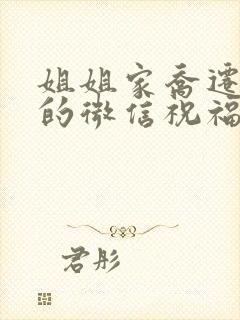 姐姐家乔迁
的微信祝福
君彤